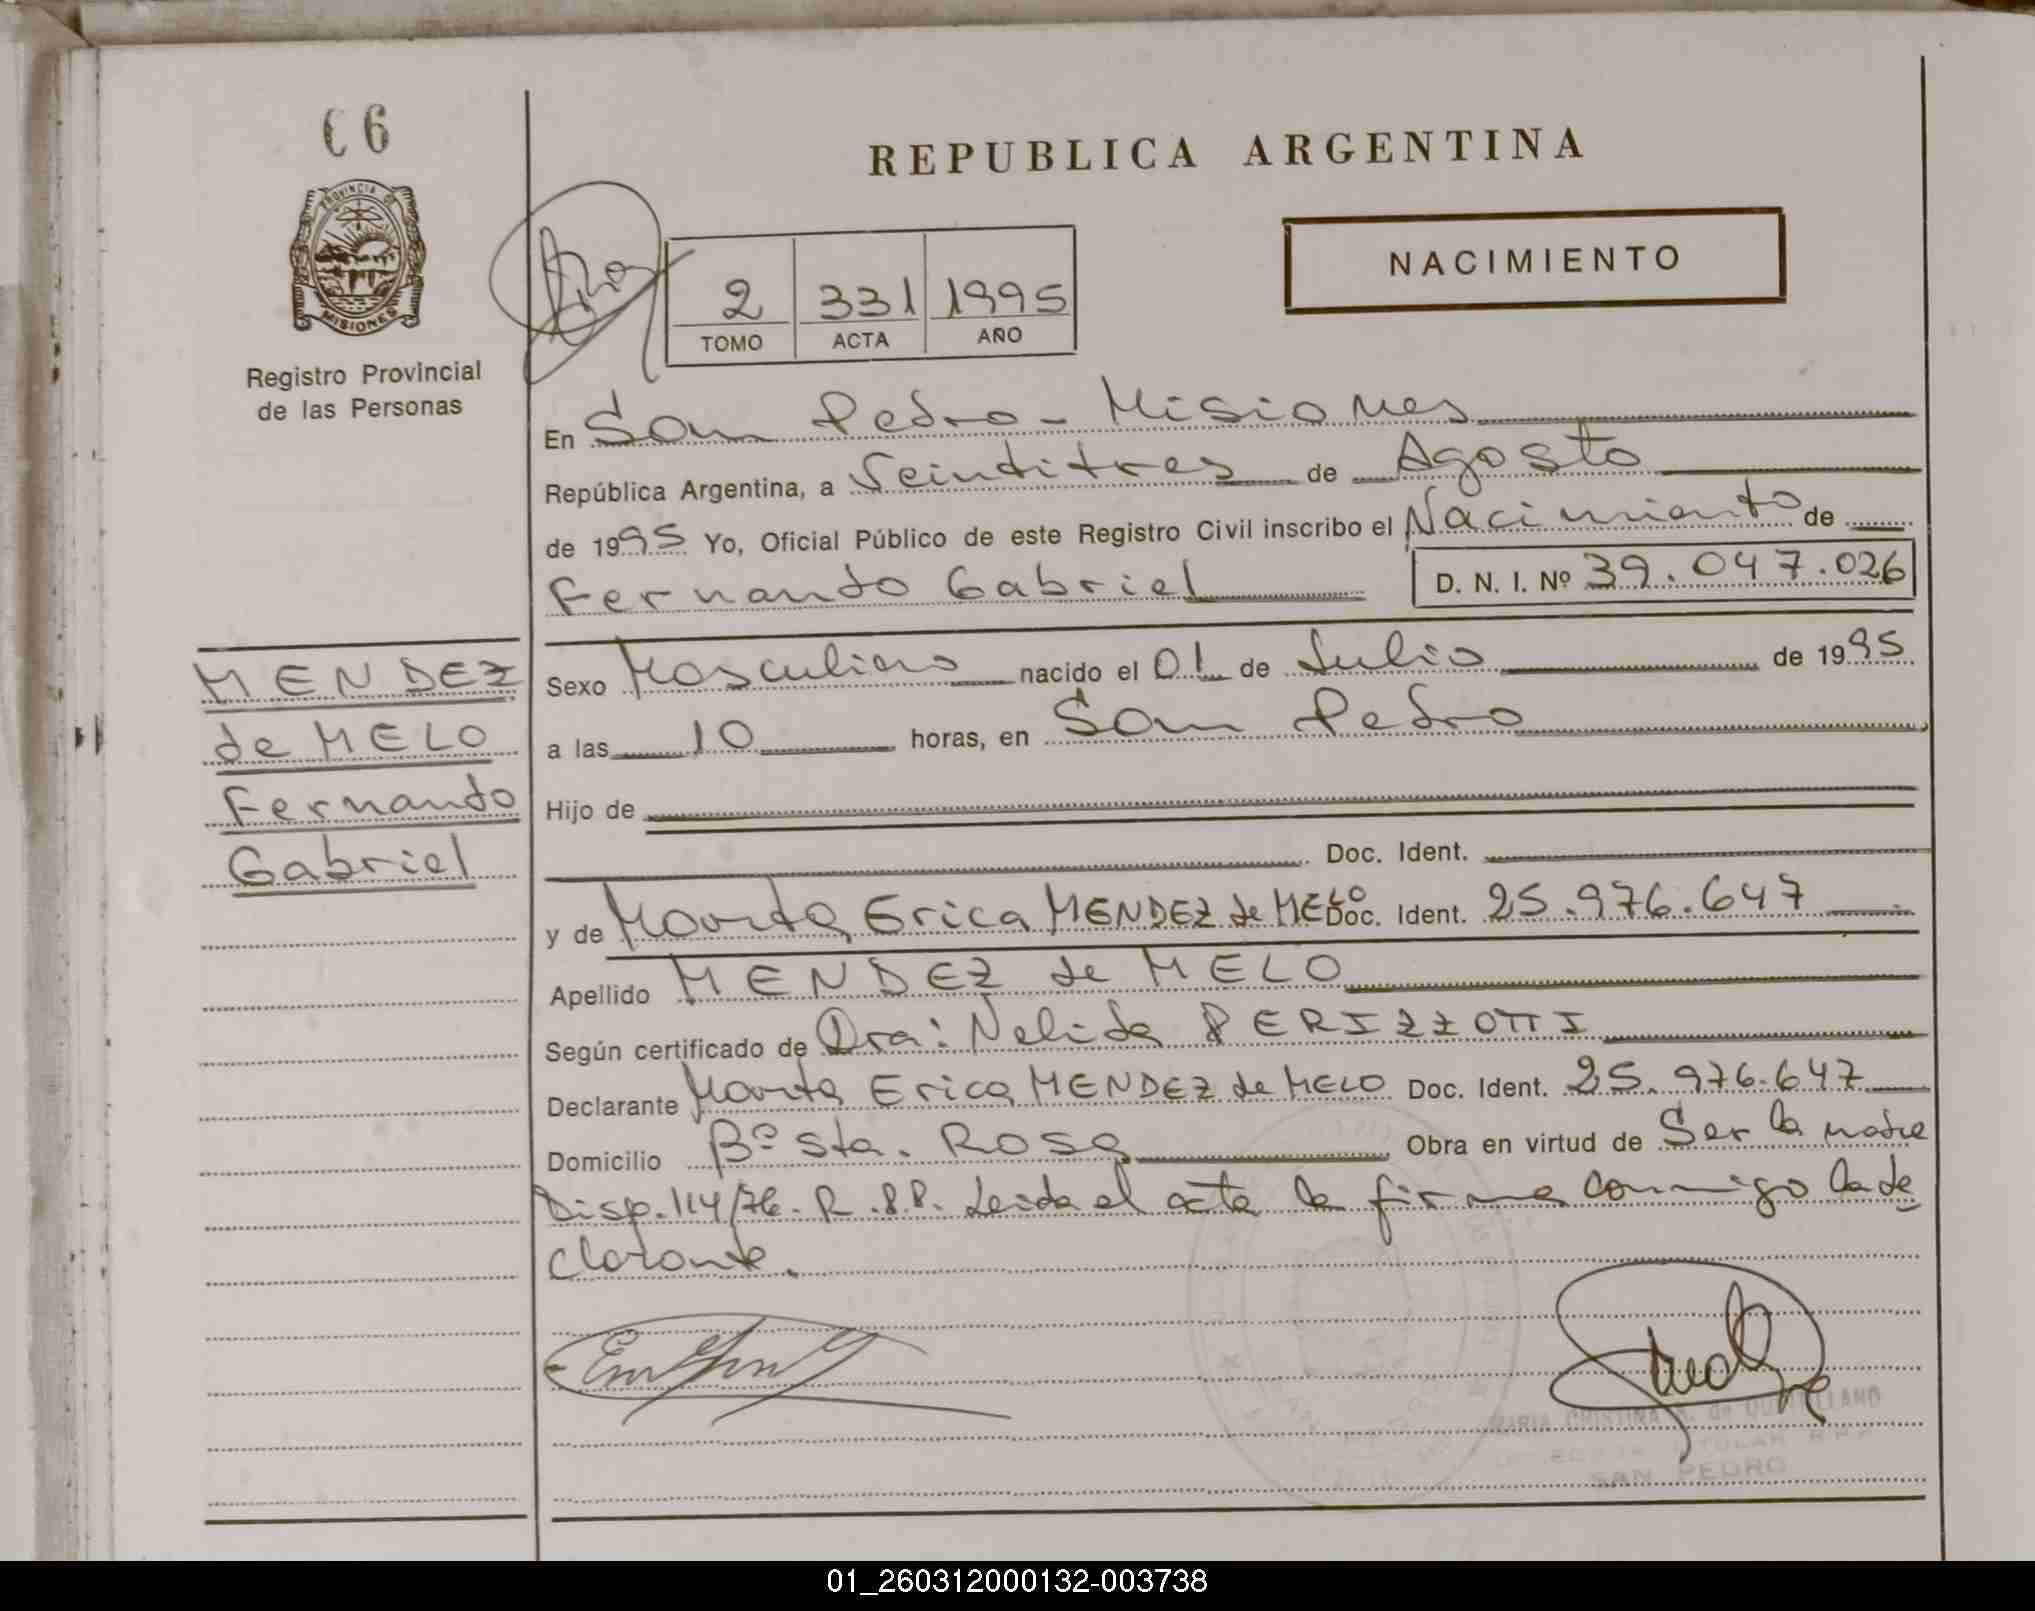 66
REPUBLICA ARGENTINA
PROVINCIA DE
MISIONES
Registro Provincial
de las Personas
2 331 1995
TOMO ACTA AÑO
NACIMIENTO
En San Pedro - Misiones
República Argentina, a Veintitres de Agosto
de 1995 Yo, Oficial Público de este Registro Civil inscribo el Nacimiento de
Fernando Gabriel D. N. I. Nº 39.047.026
MENDEZ
de MELO
Fernando
Gabriel
Sexo Masculino nacido el 01 de Julio de 1995
a las 10 horas, en San Pedro
Hijo de
Doc. Ident.
y de Marta Erica MENDEZ de MELO Doc. Ident. 25.976.647
Apellido MENDEZ de MELO
Según certificado de Dra: Nelida PERIZZOTTI
Declarante Marta Erica MENDEZ de MELO Doc. Ident. 25.976.647
Domicilio Bº Sta. Rosa Obra en virtud de Ser la madre
Disp. 114/76. R.P.P. Leida el acta la firma conmigo la de
clarante.
MARIA CRISTINA de QUINTILLANO
TITULAR R.P.P.
SAN PEDRO
01_260312000132-003738